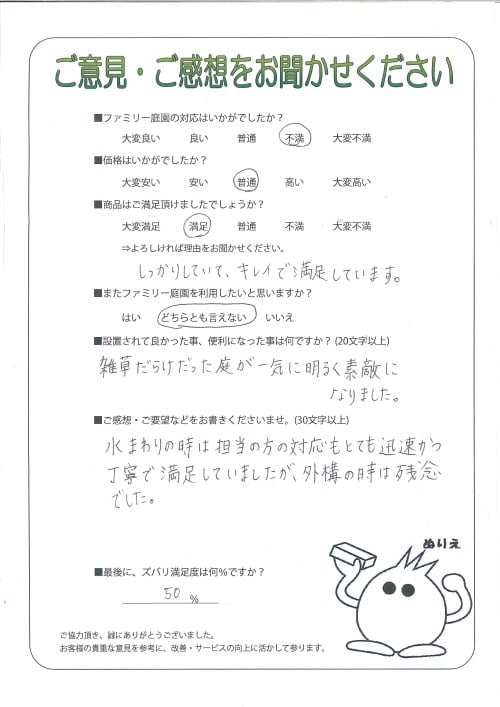 ご意見・ご感想をお聞かせください
■ファミリー庭園の対応はいかがでしたか？
大変良い 良い 普通 不満 大変不満
■価格はいかがでしたか？
大変安い 安い 普通 高い 大変高い
■商品はご満足頂けましたでしょうか？
大変満足 満足 普通 不満 大変不満
⇒よろしければ理由をお聞かせください。
しっかりしていて、キレイで満足しています。
■またファミリー庭園を利用したいと思いますか？
はい どちらとも言えない いいえ
■設置されて良かった事、便利になった事は何ですか？(20文字以上)
雑草だらけだった庭が一気に明るく素敵に
なりました。
■ご感想・ご要望などをお書きくださいませ。(30文字以上)
水まわりの時は担当の方の対応もとても迅速かつ
丁寧で満足していましたが、外構の時は残念
でした。
ぬりえ
■最後に、ズバリ満足度は何%ですか？
50 %
ご協力頂き、誠にありがとうございました。
お客様の貴重な意見を参考に、改善・サービスの向上に活かして参ります。